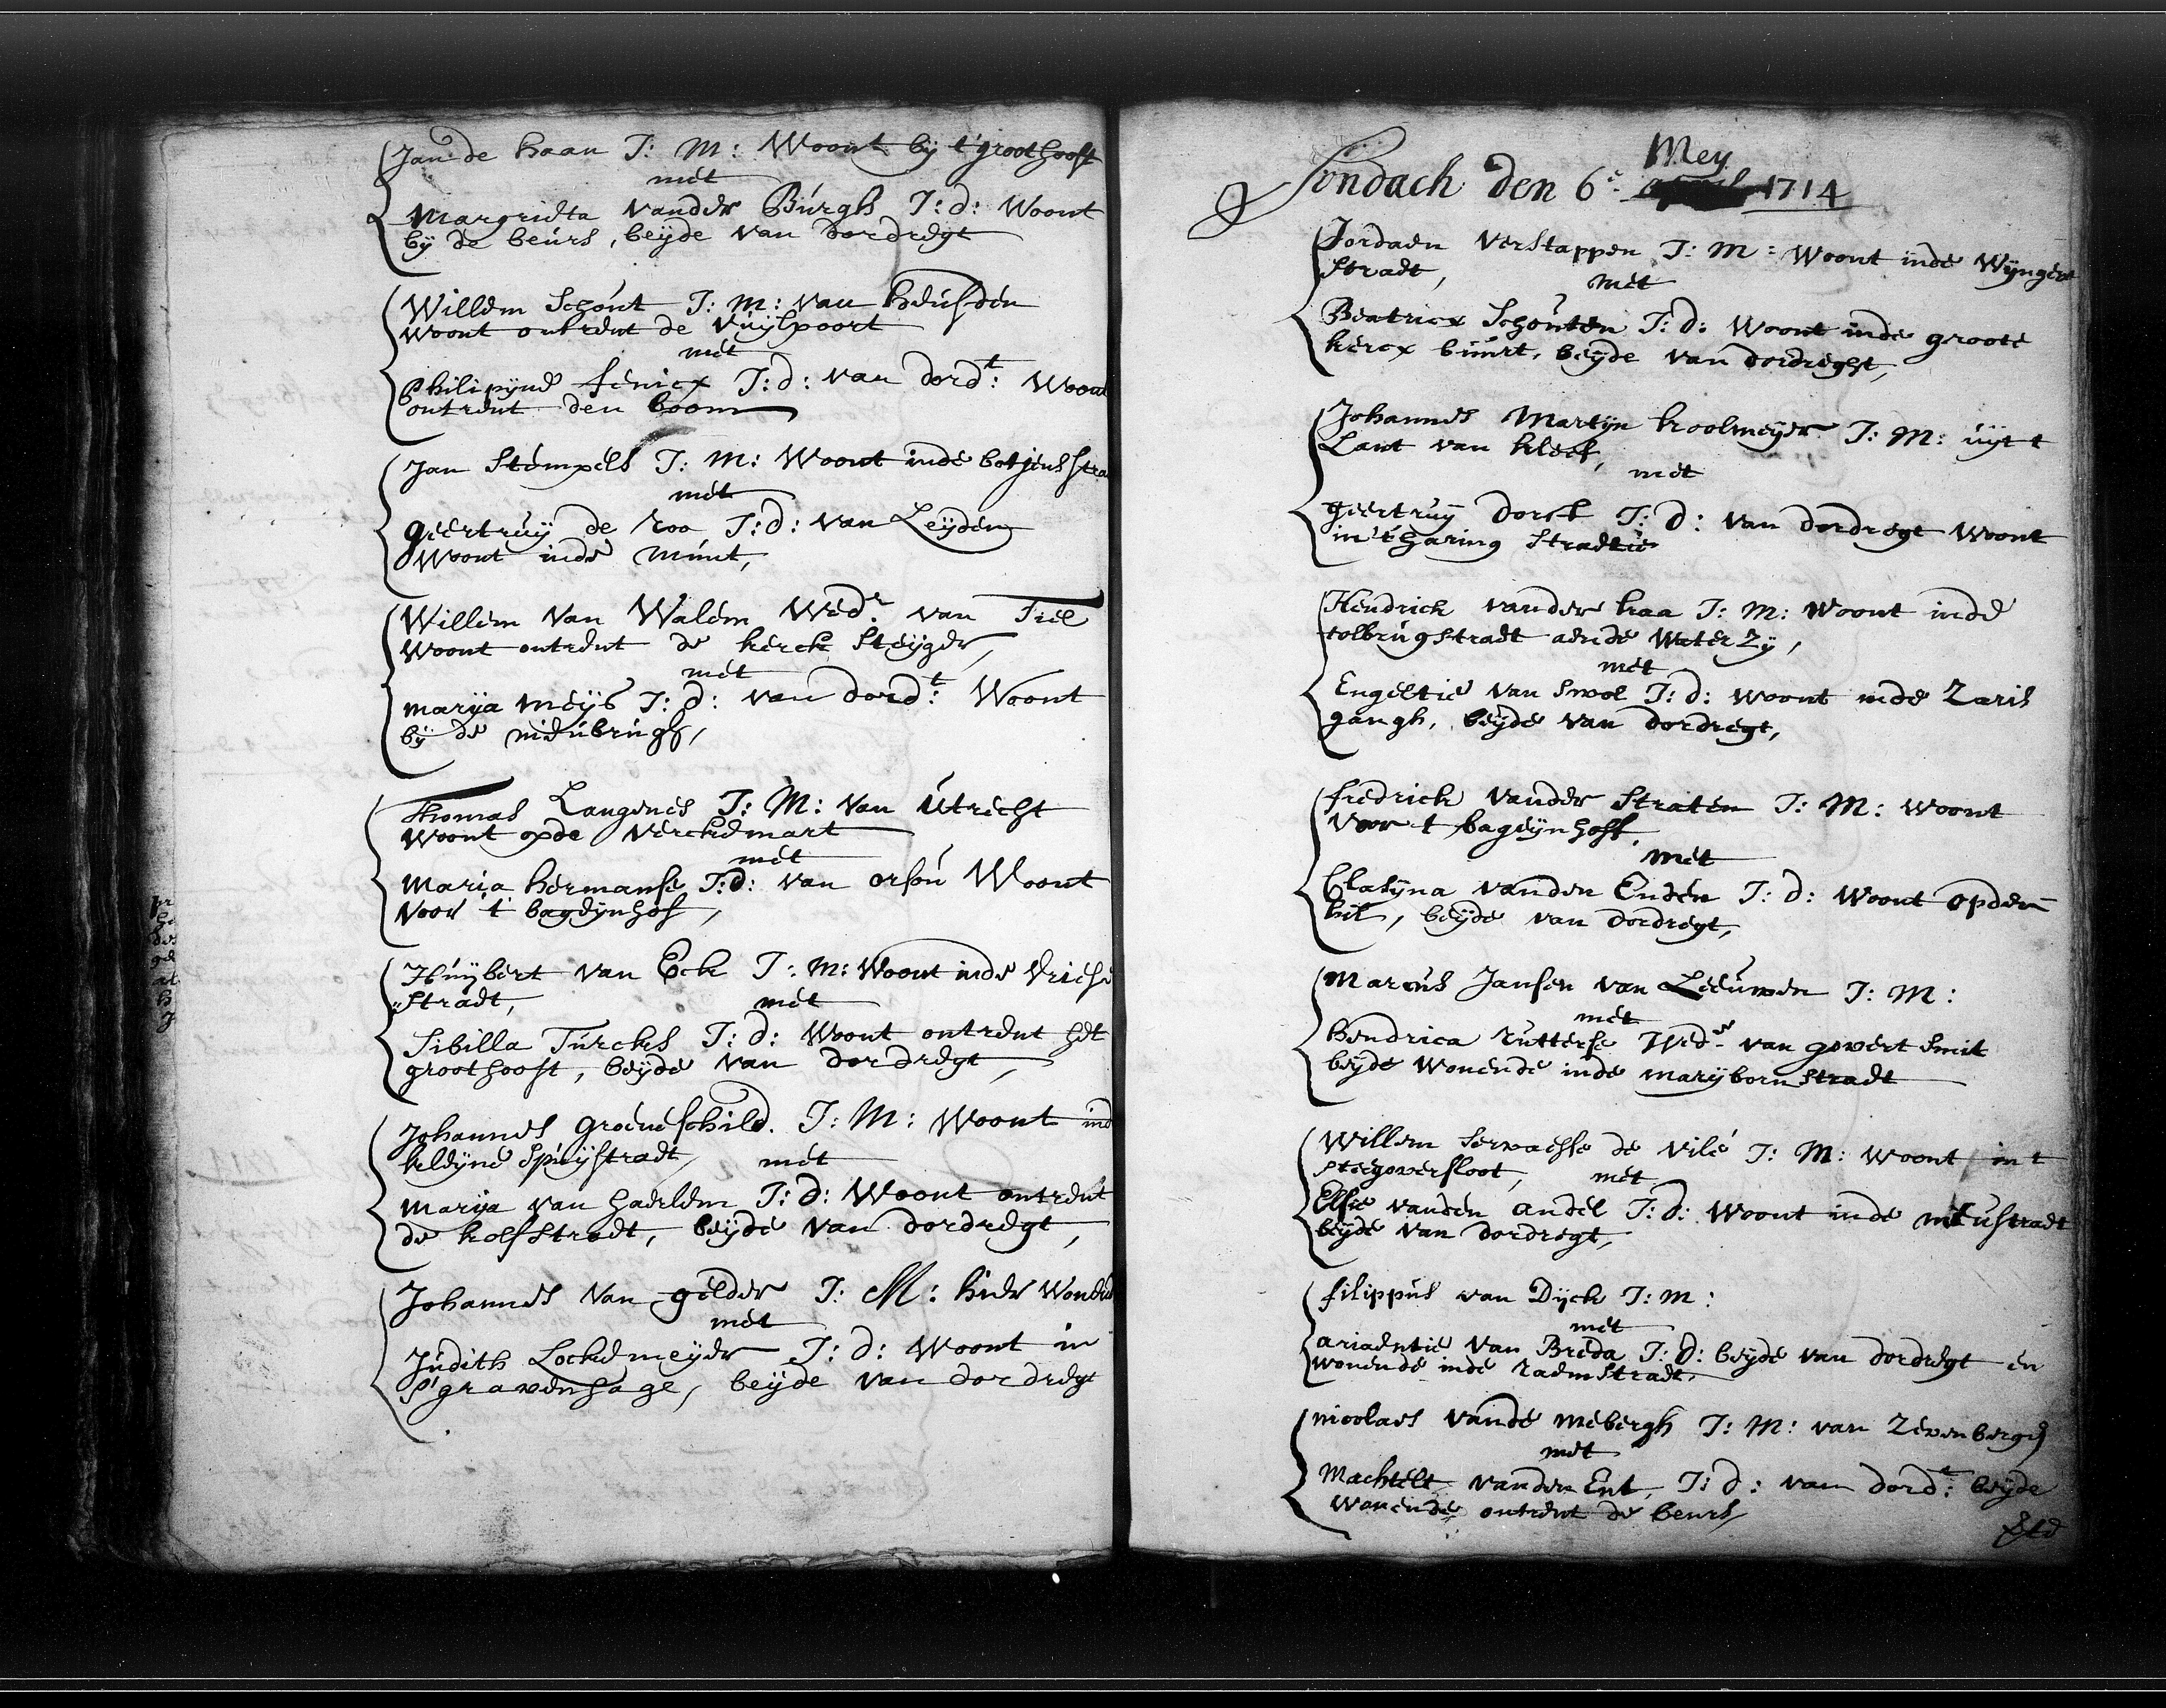 Jan de haan J: M: Woont bij t'groothooft
met
Margrieta vander Burgh J: d: Woont
bij de beurs, beijde van dordregt
Willem Schout J: M: van heusden
woont ontrent de Vuijlpoort
met
Philipijne feniex J: d: van dordt: Woont
ontrent den boom
Jan Stempels J: M: Woont inde botjensstra
met
geertruij de roo J: d: van Leijden
Woont inde Munt,
Willem Van Walem Wedr. van Tiel
Woont ontrent de kerck Steijger,
met
marija meijs J: d: van dordt: Woont
bij de nieubrugh,
Thomas Langenes J: M: van Utrecht
Woont opde Verckemart
met
Maria hermanse J: d: van orsou Woont
voor 't bageijnhof,
Huijbert van Eck J: M: Woont inde Vriese
straet,
met
Sibilla Turcks J: d: Woont ontrent het
groothooft, beijde van dordregt,
Johannes groeneschild. J: M: Woont ind
kleijne Spuijstraet,
met
Marija van haerlem J: d: Woont ontrent
de kolfstraet, beijde van dordregt,
Johannes Van gelder J: M: hier Wonende
met
Judith Lockemeijer J: d: Woont in
s'gravenhage, beijde van dordregt
Mey
Sondach den 6e. 1714
Jordaen Verstappen J: M: Woont inde Wijngert
straet,
met
Beatricx Schouten J: d: Woont inde groote
kercx buurt, beijde van dordreght,
Johannes Martijn koolmeijer J: M: uijt t
Lant van kleef,
met
geertruij Dorst J: d: van dordregt Woont
in't haring straetie
Hendrick vander kaa J: M: Woont inde
tolbrugstraet aende Water Zy,
met
Engeltie van Swol J: d: woont inde Zaris
gangh, beijde van dordregt,
fredrick vander Straten J: M: woont
voor t bageijnhoff,
met
Clasijna vanden Enden J: d: Woont opden
hil, beijde van dordregt,
Marcus Jansen van Leeuwen J: M:
met
hendrica rutterse Wede van govert Smit
beijde wonende inde marijbornstraet
Willem Servaesse de Vilé J: M: woont in t
steegoversloot,
met
Elsie vanden andel J: d: Woont inde nieustraet
beijde van dordregt,
filippus van Dijck J: M:
met
ariaentie van Breda J: d: beijde van dordregt en
wonende inde raemstraet,
nicolaes vande mebergh J: M: van Zevenbergen
met
Machtelt vanden Ent, J: d: van dordt: beijde
wonende ontrent de beurs,